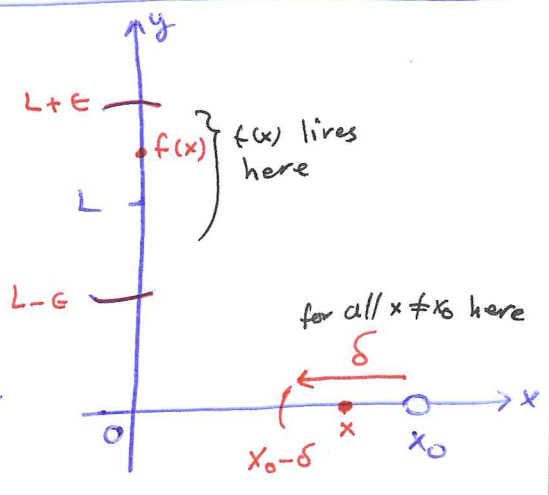 y
L+ϵ
f(x)
f(x) lives
here
L
L-ϵ
for all x≠x₀ here
δ
x
0
x₀-δ
x
x₀